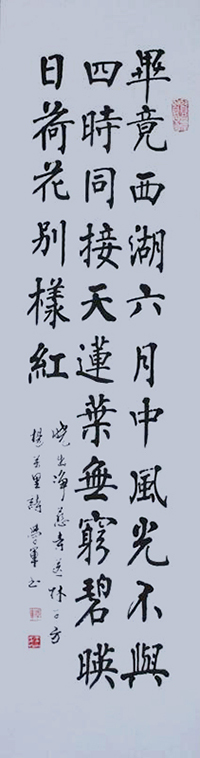 畢竟西湖六月中風光不與
四時同接天蓮葉無窮碧暎
日荷花別樣紅
曉出淨慈寺送林子方
楊萬里詩